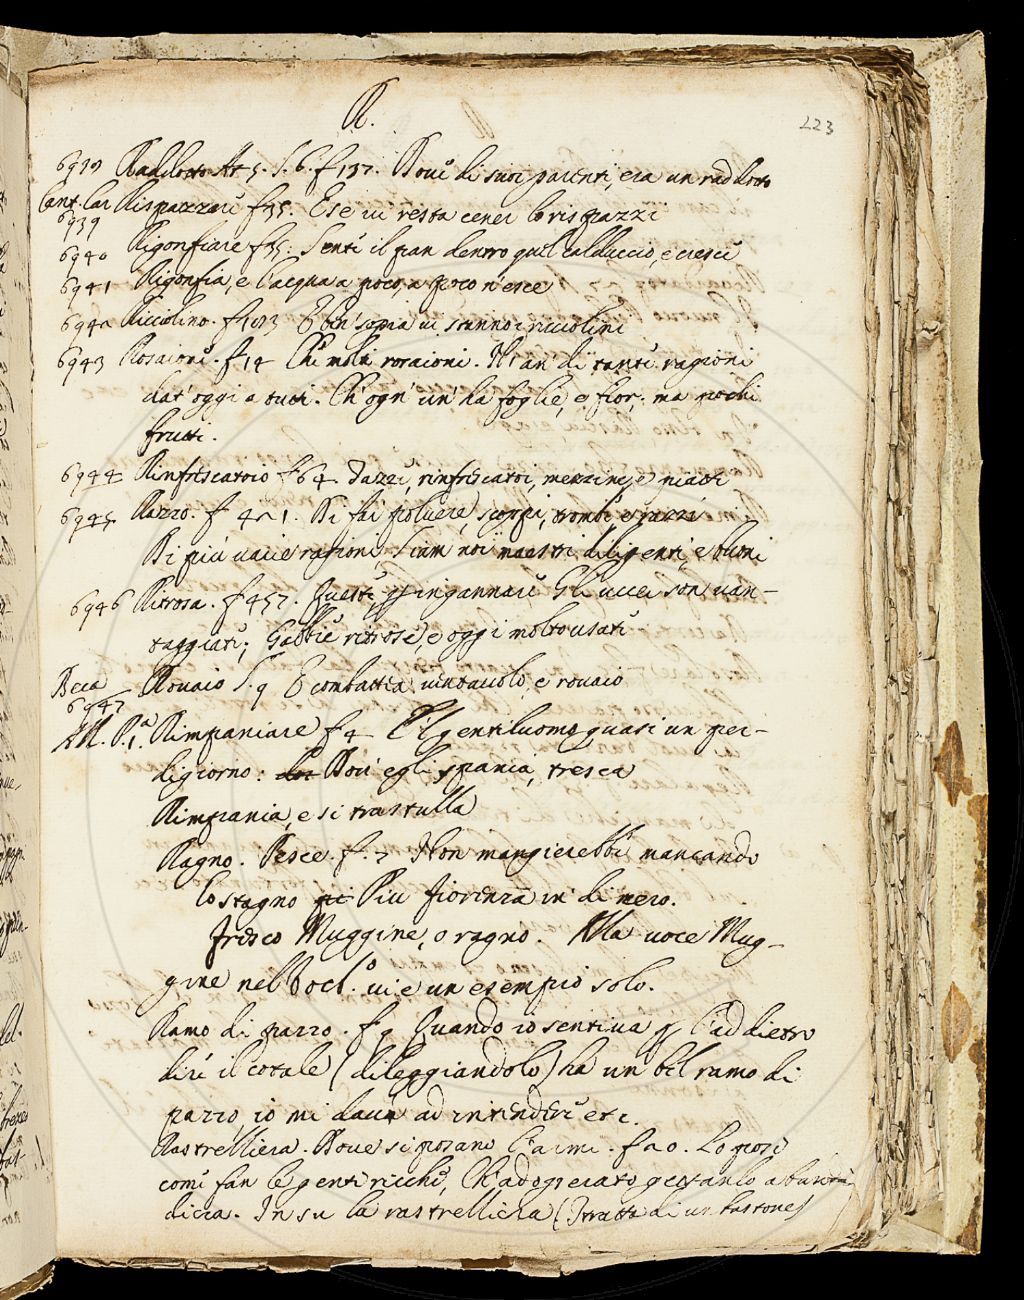 R.
223
6939 Raddotto At 5. S. 6. f 137. Dove di suoi parenti, era un raddotto
Cant. Car Risprazzare f 35. E se vi resta cener lo risprazzi
6939
6940 Rigonfiare f 35. Senti il pan dentro quel calduccio, e cresce
6941 Rigonfia, e l'acqua a poco, a poco n'esce
6942 Ricciolino. f 193 E ben' sopra vi stanno i ricciolini
6943 Rosaioni. f 14 Chi rosaioni. di tante ragioni
dat' oggi a tutti. Ch' ogn' un' ha foglie, e fior; ma pochi
frutti.
6944 Rinfrescatoio f 64 Tazze, rinfrescatoi, mezzine, e piatti
6945 Razzo. f 421. Di far polvere, scoppi, trombe e razzi
Di più varie ragioni, Siam noi maestri diligenti, e buoni
6946 Ritrosa. f 457. Questi, p ingannare Gli uccei son van-
taggiati; Gabbie ritrose, e oggi molto usati
Beca Rovaio S. 9 E combattea vento avolo, e rovaio
6947
At. P. 1.a Rimpaniare f 4 E 'l gentiluomo quasi un per-
digiorno: Dov' egli spania, tresca
Rimpania, e si trastulla
Ragno. Pesce. f. 7 Non mangierebbe mancando
lo stagno Più Fiorenza in di nero.
fresco Muggine, o ragno. Alla voce Mug-
gine nel Voc.o vi è un esempio solo.
Ramo di pazzo. f 9 Quando io sentiva p l'addietro
dire il cotale (dileggiandolo) ha un bel ramo di
pazzo, io mi dava ad intendere etc.
Rastrelliera. Dove si posano l'armi. f 20. Lo posi
come fan le genti ricche, Ch' adoperato gettanlo a
dicea. In su la rastrelliera (Tratta di un bastone)